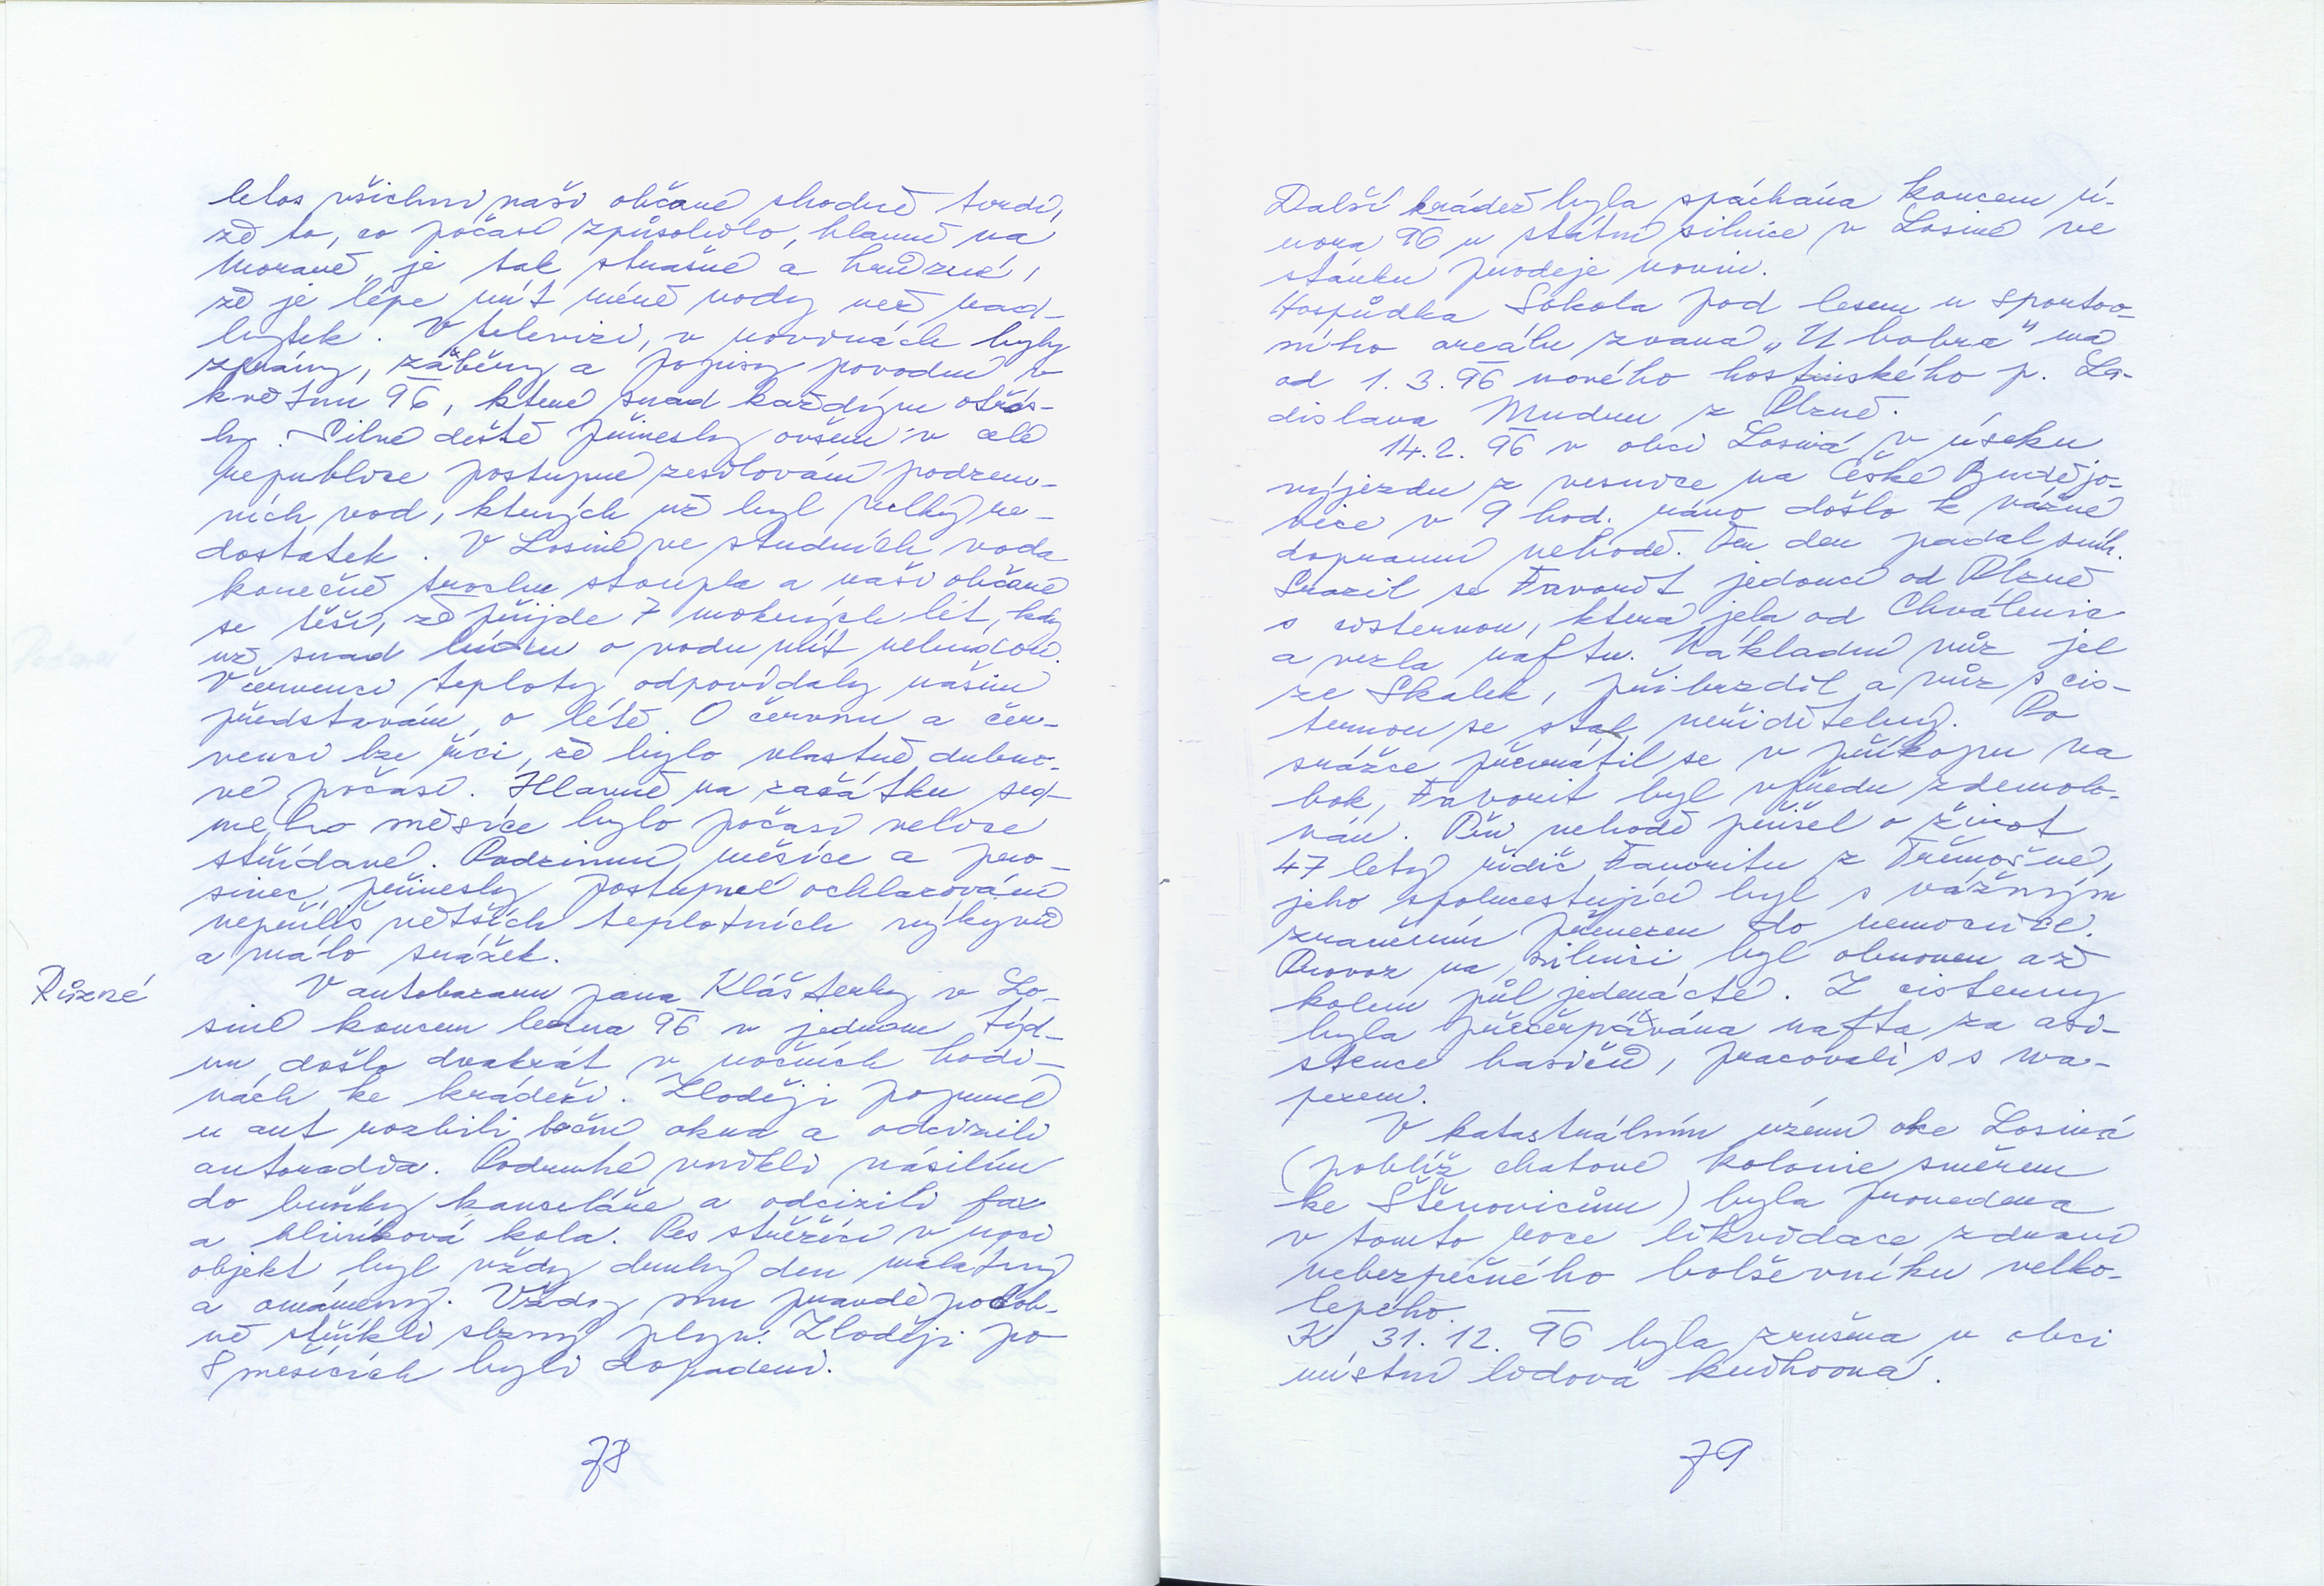 letos všichni naši občané shodně tvrdí,
že to, co počasí způsobilo, hlavně na
Moravě, je tak strašné a hrůzné,
že je lépe mít méně vody než nad-
bytek. V televizi, v novinách byly
zprávy, záběry a popisy povodní v
květnu 96, které snad každým otřás-
ly. Silné deště přinesly ovšem v celé
republice postupné zesilování podzem-
ních vod, kterých už byl velký ne-
dostatek. V Losiné ve studních voda
konečně trochu stoupla a naši občané
se těší, že přijde 7 mokrých let, kdy
už snad bídu o vodu mít nebudou.
V červenci teploty odpovídaly našim
představám o létě. O červnu a čer-
venci lze říci, že bylo vlastně dubno-
vé počasí. Hlavně na začátku sed-
mého měsíce bylo počasí velice
střídavé. Podzimní měsíce a pro-
sinec přinesly postupné ochlazování
nepříliš větších teplotních výkyvů
a málo srážek.
Různé
V autobazaru pana Klášterky v Lo-
siné koncem ledna 96 v jednom týd-
nu došlo dvakrát v nočních hodi-
nách ke krádeži. Zloději poprvé
u aut rozbili boční okna a odcizili
autoradia. Podruhé vnikli násilím
do buňky kanceláře a odcizili fax
a hliníková kola. Pes střežící v noci
objekt byl vždy druhý den malátný
a omámený. Vždy mu pravděpodob-
ně stříkli slzný plyn. Zloději po
8 mesících byli dopadeni.
78
Další krádež byla spáchána koncem ú-
nora 96 u státní silnice v Losiné ve
stánku prodeje novin.
Hospůdka Sokola pod lesem u sportov-
ního areálu zvaná „U bobra" má
od 1. 3. 96 nového hostinského p. La-
dislava Mudru z Plzně.
14. 2. 96 v obci Losiná v úseku
výjezdu z vesnice na České Budějo-
vice v 9 hod. ráno došlo k vážné
dopravní nehodě. Ten den padal sníh.
Srazil se Favorit jedoucí od Plzně
s cisternou, která jela od Chválenic
a vezla naftu. Nákladní vůz jel
ze Skalek, přibrzdil a vůz s cis-
ternou se stal neřiditelný. Po
srážce převrátil se v příkopu na
bok, Favorit byl vpředu zdemolo-
ván. Při nehodě přišel o život
47 letý řidič Favoritu z Třemošné,
jeho spolucestující byl s vážným
zraněním převezen do nemocnice.
Provoz na silnici byl obnoven až
kolem půl jedenácté. Z cisterny
byla přečerpávána nafta za asi-
stence hasičů, pracovali s s wa-
pexem.
V katastrálním území obce Losiná
(poblíž chatové kolonie směrem
ke Štěnovicům) byla provedena
v tomto roce likvidace zdraví
nebezpečného bolševníku velko-
lepého.
K 31. 12. 96 byla zrušena v obci
místní lidová knihovna.
79